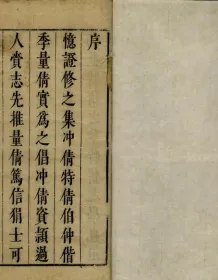 序
憶證修之集冲倩特倩伯仲偕
季量倩實爲之倡冲倩資頴過
人賫志先推量倩篤信狷士可